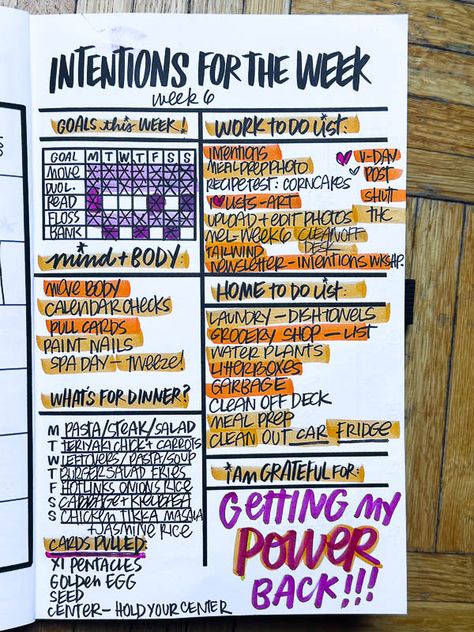 INTENTIONS FOR THE WEEK
week 6
GOALS this WEEK!
GOAL M T W T F S S
MOVE
READ
FLOSS
BANK
mind + BODY:
MOVE BODY
CALENDAR CHECKS
PULL CARDS
PAINT NAILS
SPA DAY - TWEEZE!
WHAT'S FOR DINNER?
M PASTA/STEAK/SALAD
T TERIYAKI CHICK + CARROTS
W LEFTOVERS/PASTA/SOUP
T BURGER SALAD FRIES
F HOTLINKS ONIONS RICE
S CABBAGE + KIELBASA
S CHICKEN TIKKA MASALA
+ JASMINE RICE
CARDS PULLED:
XI PENTACLES
GOLDEN EGG
SEED
CENTER - HOLD YOUR CENTER
WORK TO DO LIST:
INTENTIONS
MEAL PREP PHOTO
RECIPE TEST: CORNCAKES
LISTS - ART
UPLOAD + EDIT PHOTOS
MEL - WEEK 6 CLEAN OFF
TAILWIND DESK
NEWSLETTER - INTENTIONS WKSHP.
V-DAY
POST
SHUTT
THC
HOME TO DO LIST:
LAUNDRY - DISHTOWELS
GROCERY SHOP - LIST
WATER PLANTS
LITTERBOXES
GARBAGE
CLEAN OFF DECK
MEAL PREP
CLEAN OUT CAR FRIDGE
*I AM GRATEFUL FOR:
GETTING MY
POWER
BACK!!!